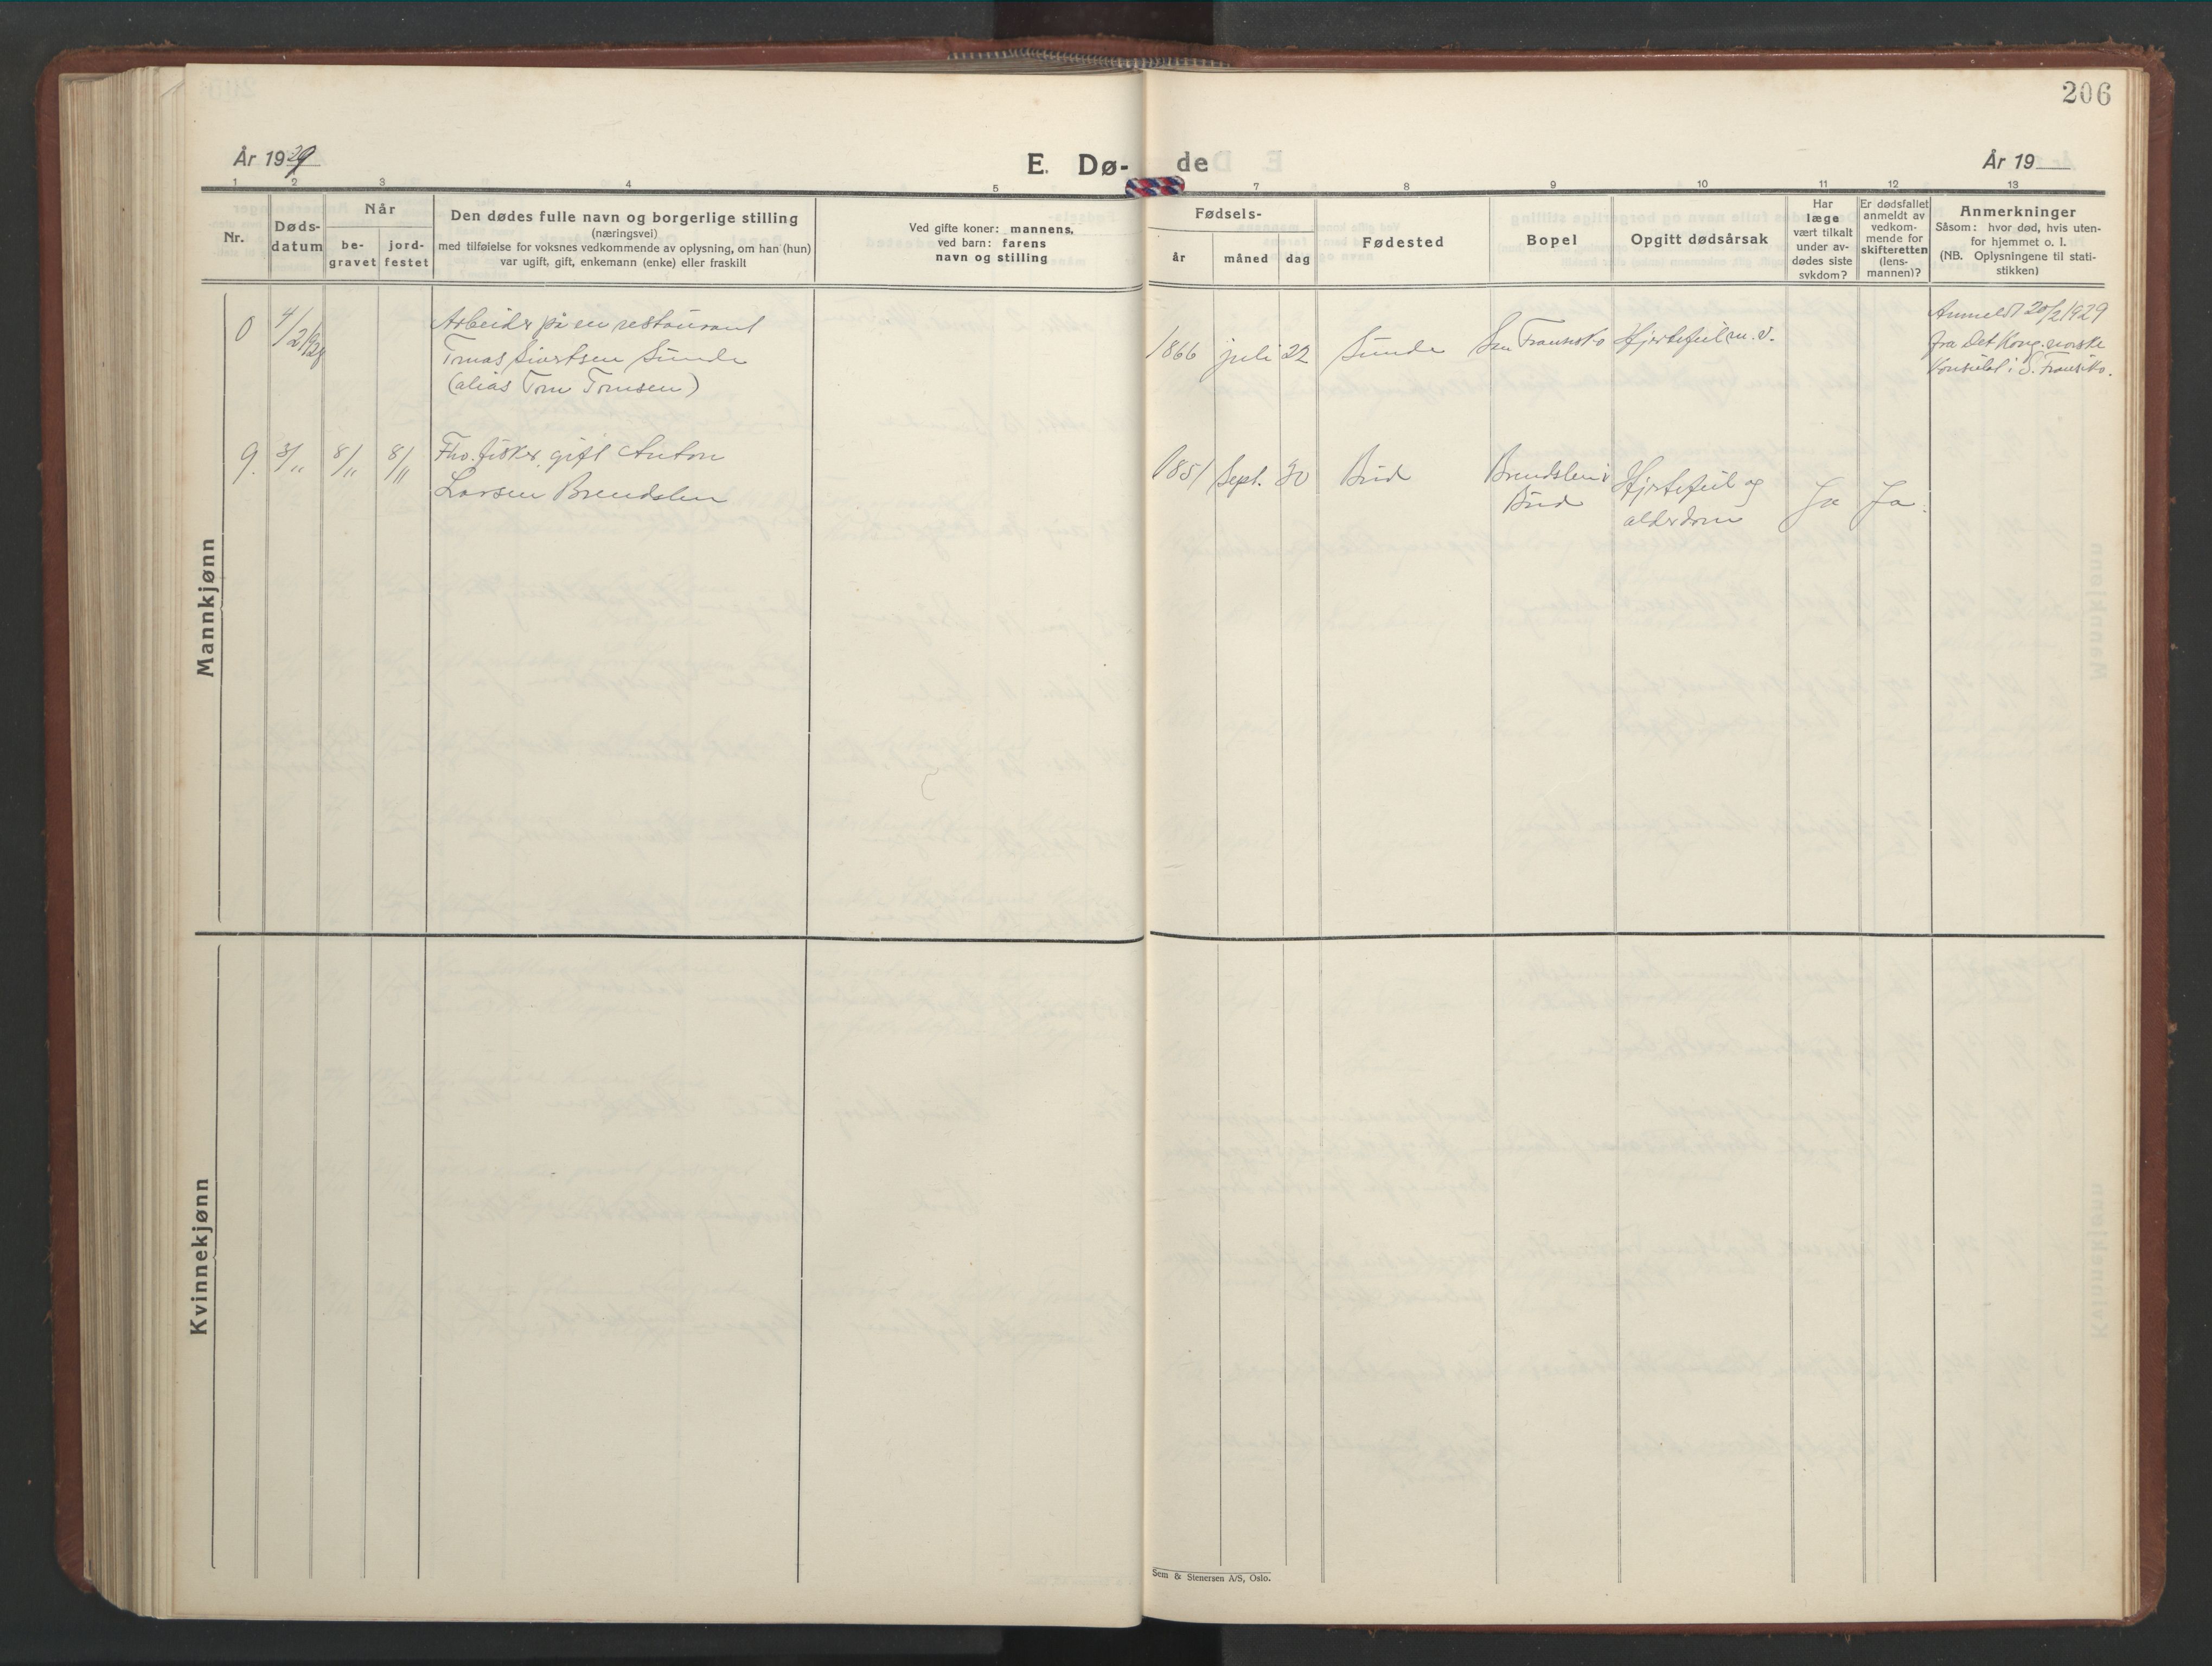 206
År 1929
E. Dø-
de
År 19
1 2 3 4 5 7 8 9 10 11 12 13
Nr.
Døds-
datum
Når
be-
gravet
jord-
festet
Den dødes fulle navn og borgerlige stilling
(næringsvei)
med tilføielse for voksnes vedkommende av oplysning, om han (hun)
var ugift, gift, enkemann (enke) eller fraskilt
Ved gifte koner: mannens,
ved barn: farens
navn og stilling
Fødsels-
år
måned
dag
Fødested
Bopel
Opgitt dødsårsak
Har
læge
vært tilkalt
under av-
dødes siste
sykdom?
Er dødsfallet
anmeldt av
vedkom-
mende for
skifteretten
(lens-
mannen)?
Anmerkninger
Såsom: hvor død, hvis uten-
for hjemmet o. l.
(NB. Oplysningene til stati-
stikken)
Mannkjønn
0 4/2 1929 Arbeider på en restaurant
Tomas Sivertsen Sunde
(alias Tom Tomsen)
1866 juli 22 Sunde San Fransisko Hjertefeil m.v.
Anmeldt 20/2 1929
fra Det Kong. norske
Konsulat i S. Fransisko.
9. 3/11 8/11 8/11 Fhv. fisker, gift Anton
Larsen Brendslen
1851 Sept. 30 Bud Brendslen i
Bud
Hjertefeil og
alderdom
Ja Ja.
Kvinnekjønn
Sem & Stenersen A/S, Oslo.